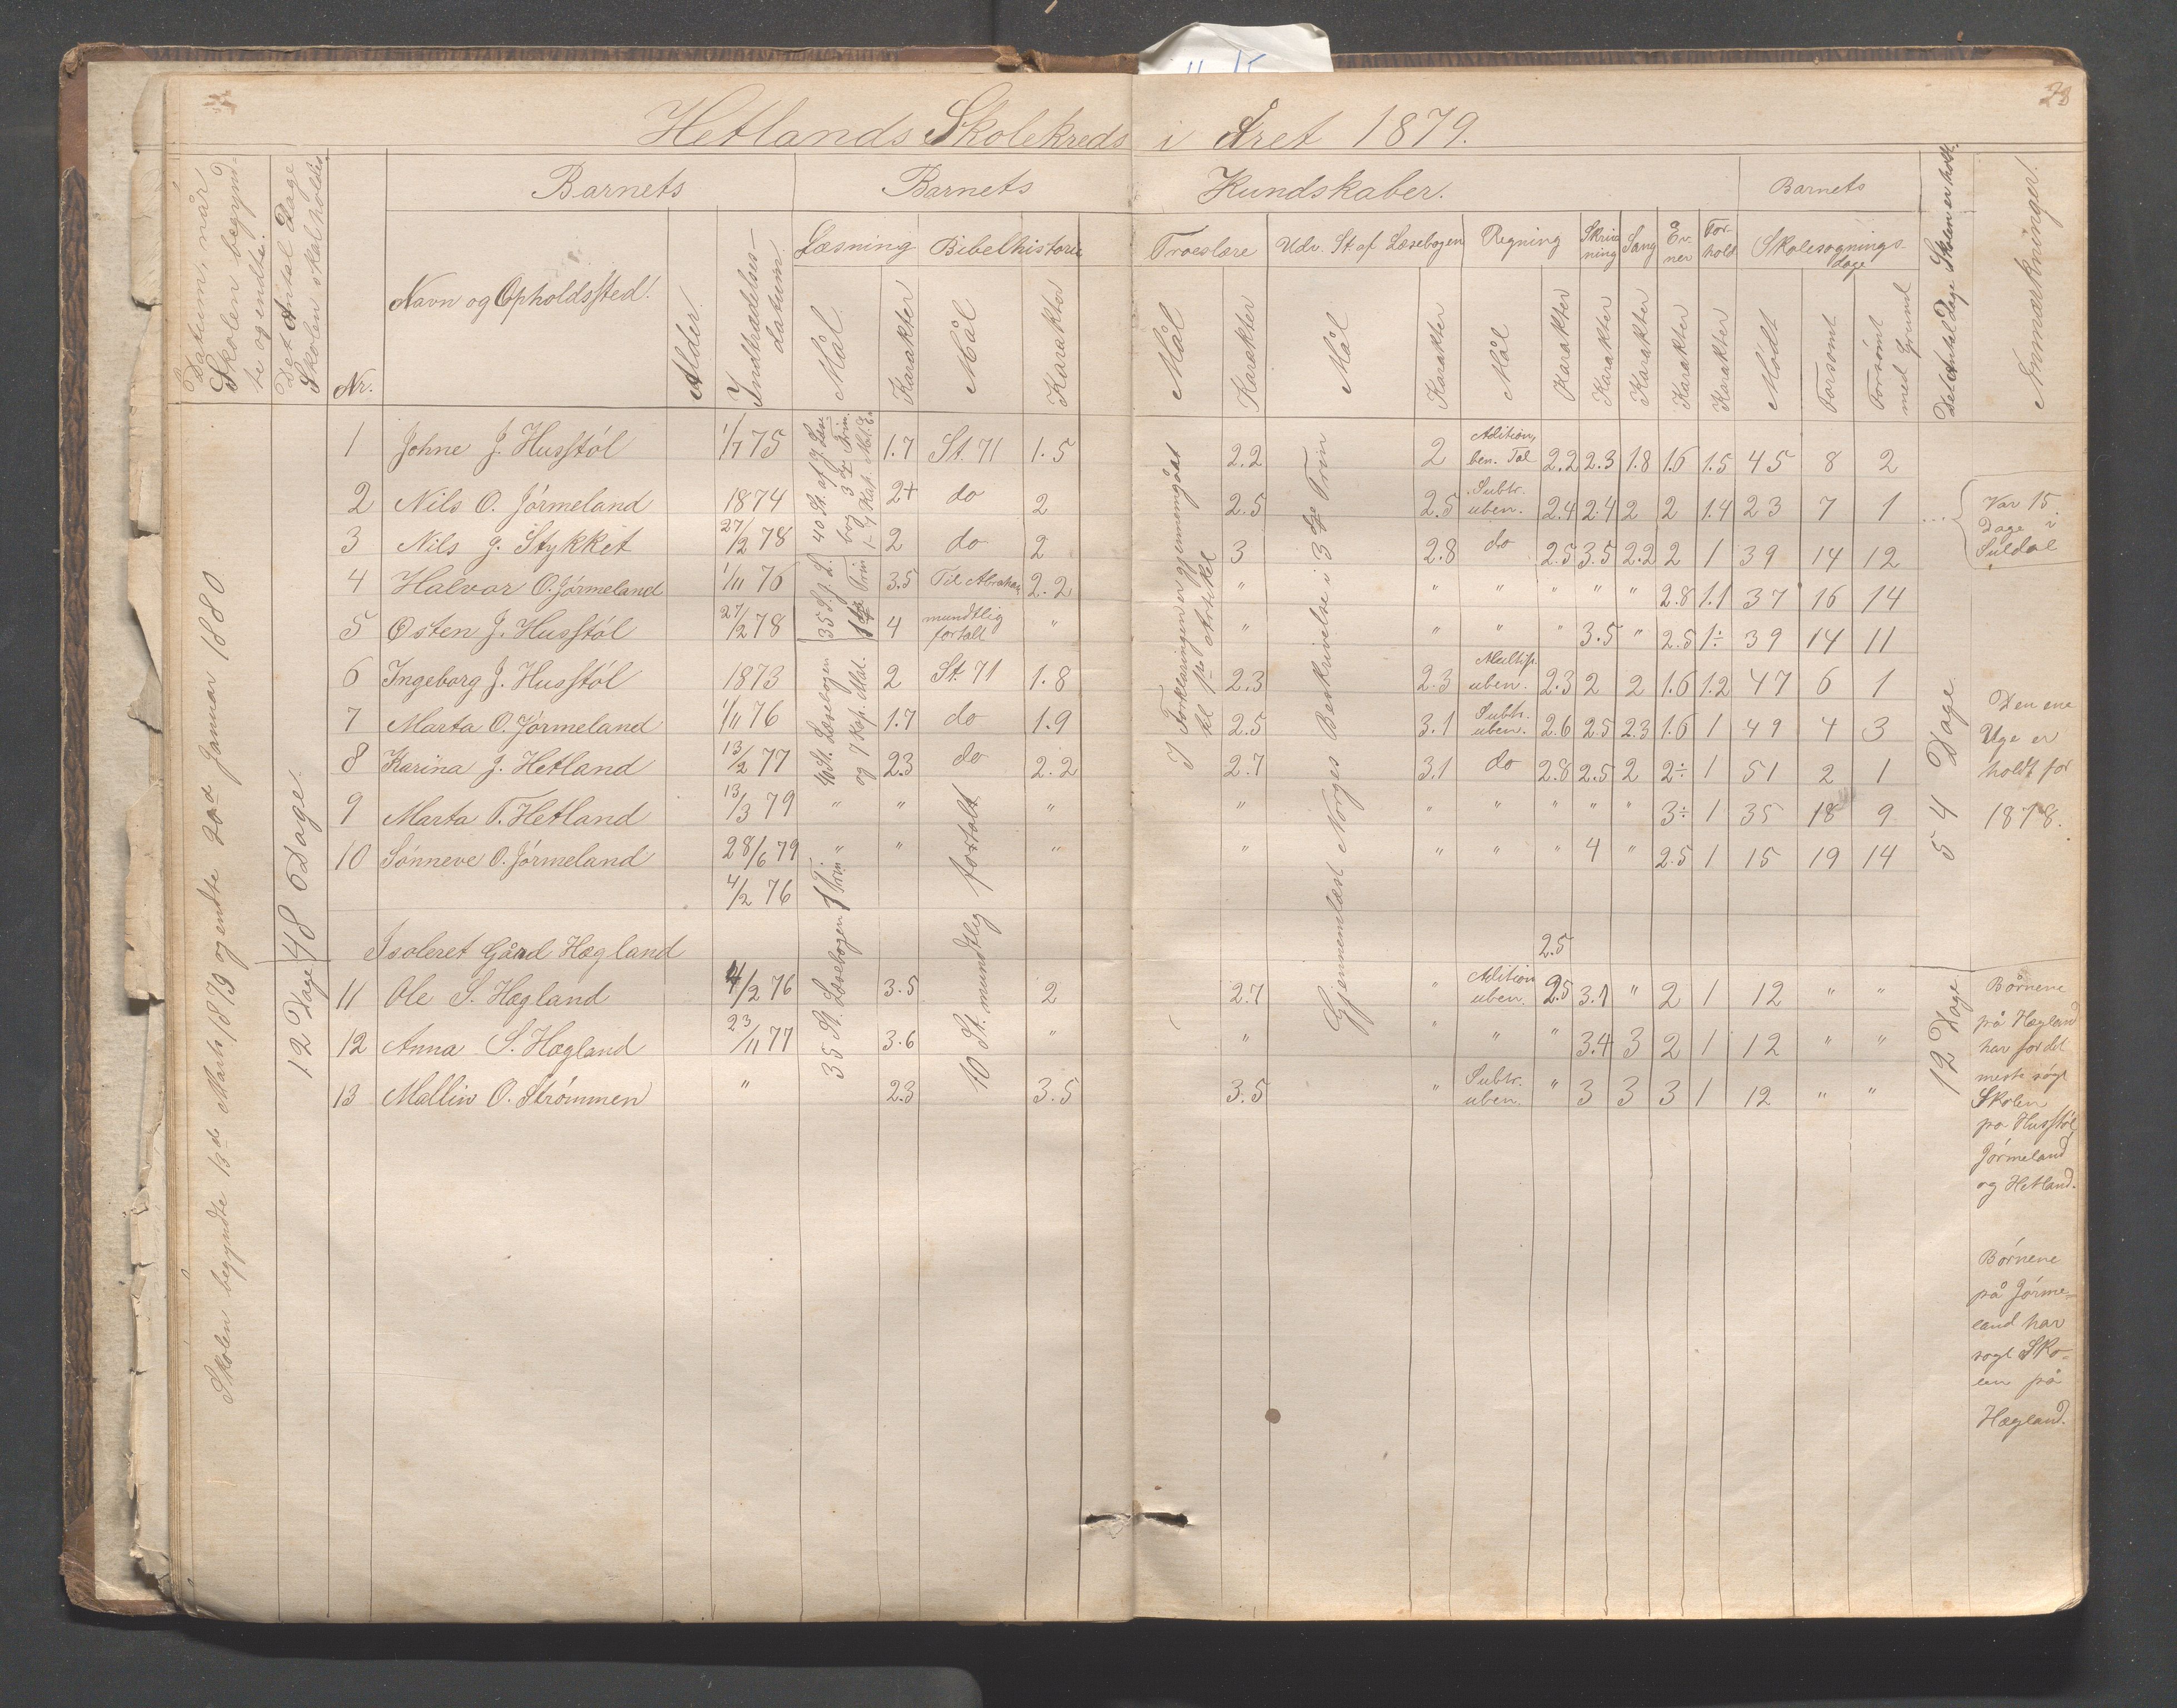 28
Hetlands Skolekreds i Året 1879.
Datum, når Skolen begynd-
te og endte.
Det Antal Dage
Skolen skal holdes.
Nr.
Barnets
Navn og Opholdssted.
Alder.
Indtrædelses-
datum.
Barnets Kundskaber.
Læsning
Mål
Karakter
Bibelhistorie
Mål
Karakter
Troeslære
Mål
Karakter
Udv. St. af Læsebogen
Mål
Karakter
Regning
Mål
Karakter
Skriv
ning
Karakter
Sang
Karakter
Ev-
ner
Karakter
For-
hold
Karakter
Barnets
Skolesøgnings-
dage
Mødt
Forsømt
Forsømt
med Grund
Det Antal Dage Skolen er holdt.
Anmærkninger.
Skolen begyndte 13de Marts 1879 og endte 20de Januar 1880
48 Dage.
12 Dage
40 St. af J. Læse
bog 3die Trin.
1-7 Kap. Mat. E.
35 St. J. L.
1ste Trin
40 St. Læsebogen
og 7 Kap. Mat.
35 St. Læsebogen 1 Trin
10 St. mundtleg fortalt
I Forklaringen er gjennemgået
til 1ste Artikel
Gjennemlæst Norges Beskrivelse i 3die Trin
1 Johne J. Husstøl 1/11 75 1.7 St. 71 1.5 2.2 2 Adition, ben. Tal 2.2 2.3 1.8 1.6 1.5 45 8 2
2 Nils O. Jørmeland 1874 2+ do 2 2.5 2.5 Subtr. uben. 2.4 2.4 2 2 1.4 23 7 1 ... Var 15
Dage i
Suldal
3 Nils J. Stykket 27/2 78 2 do 2 3 2.8 do 2.5 3.5 2.2 2 1 39 14 12
4 Halvor O. Jørmeland 1/11 76 3.5 Til Abraham 2.2 " " " " " " 2.8 1.1 37 16 14
5 Østen J. Husstøl 27/2 78 4 mundtlig fortalt " " " " " 3.5 " 2.5 1÷ 39 14 11
6 Ingeborg J. Husstøl 1873 2 St. 71 1.8 2.3 2.3 Multip. uben. 2.3 2 2 1.6 1.2 47 6 1
7 Marta O. Jørmeland 1/11 76 1.7 do 1.9 2.5 3.1 Subtr. uben. 2.6 2.5 2.3 1.6 1 49 4 3
8 Karina J. Hetland 13/2 77 2.3 do 2.2 2.7 3.1 do 2.8 2.5 2 2÷ 1 51 2 1
9 Marta T. Hetland 13/3 79 " " " " " " " " " 3÷ 1 35 18 9
10 Sønneve O. Jørmeland 28/6 79 " " " " " " " 4 " 2.5 1 15 19 14
4/2 76
54 Dage
Den ene
Uge er
holdt for
1878.
Isoleret Gård Hægland 2.5
11 Ole S. Hægland 4/2 76 3.5 2 2.7 " Adition uben. 2.5 3.1 " 2 1 12 " "
12 Anna S. Hægland 23/11 77 3.6 " " " " " 3.4 3 2 1 12 " "
13 Mallin O. Strømmen " 2.3 3.5 3.5 " Subtr. uben. " 3 3 3 1 12 " "
12 Dage
Børnene
på Hægland
har for det
meste søgt
Skolen
på Husstøl,
Jørmeland
og Hetland.
Børnene
på Jørme-
land har
søgt Sko-
len på
Hægland.